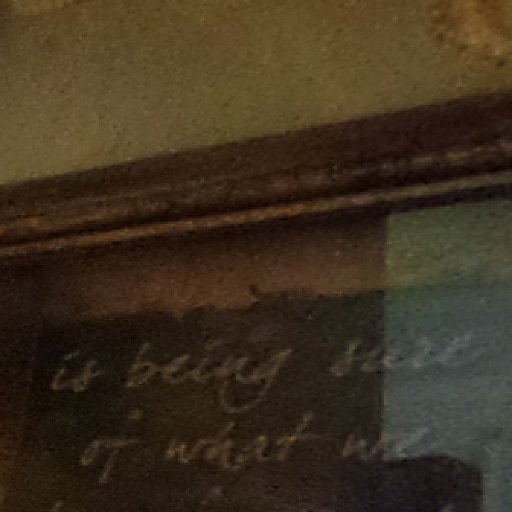 is being sure
of what we